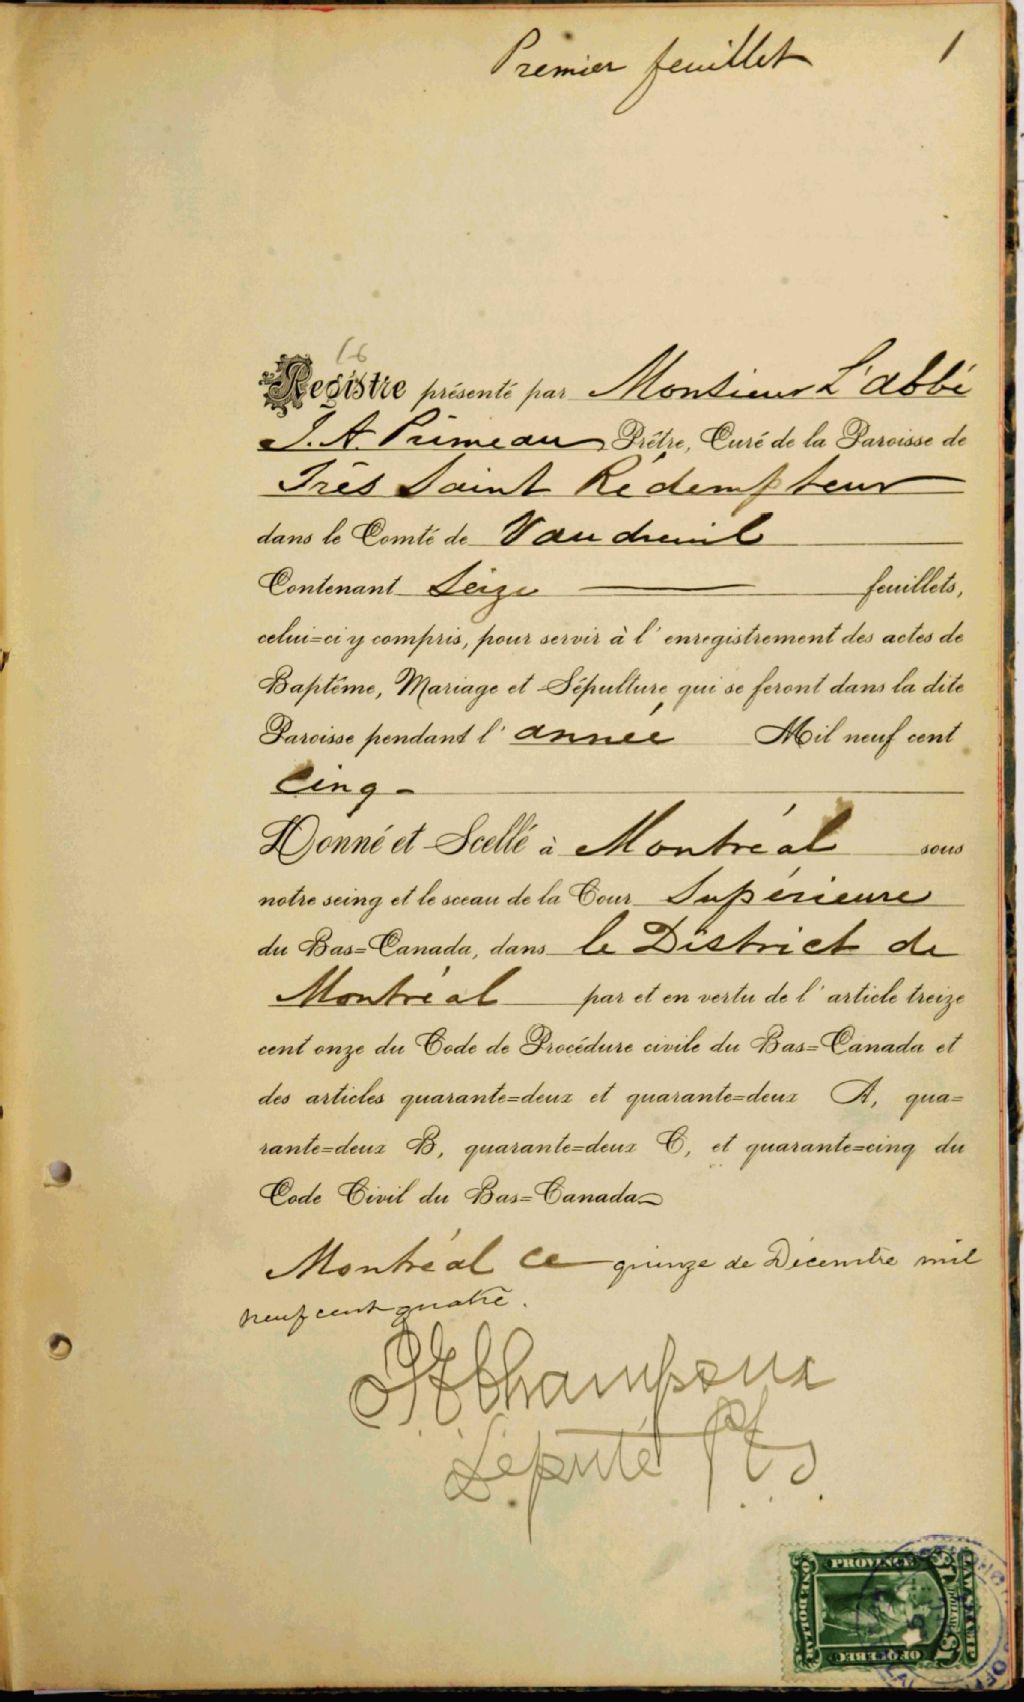 Premier feuillet 1
16
Registre présenté par Monsieur L'abbé
J. A. Primeau, Prêtre, Curé de la Paroisse de
Très Saint Rédempteur
dans le Comté de Vaudreuil
Contenant Seize feuillets,
celui=ci y compris, pour servir à l'enregistrement des actes de
Baptême, Mariage et Sépulture qui se feront dans la dite
Paroisse pendant l'année Mil neuf cent
cinq -
Donné et Scellé à Montréal sous
notre seing et le sceau de la Cour Supérieure
du Bas=Canada, dans le District de
Montréal par et en vertu de l'article treize
cent onze du Code de Procédure civile du Bas=Canada et
des articles quarante=deux et quarante=deux A, qua=
rante=deux B, quarante=deux C, et quarante=cinq du
Code Civil du Bas=Canada
Montréal ce quinze de Décembre mil
neuf cent quatre.
Champoux
Député P.C.S.
PROVINCE
ONE DOLLAR
OF QUEBEC